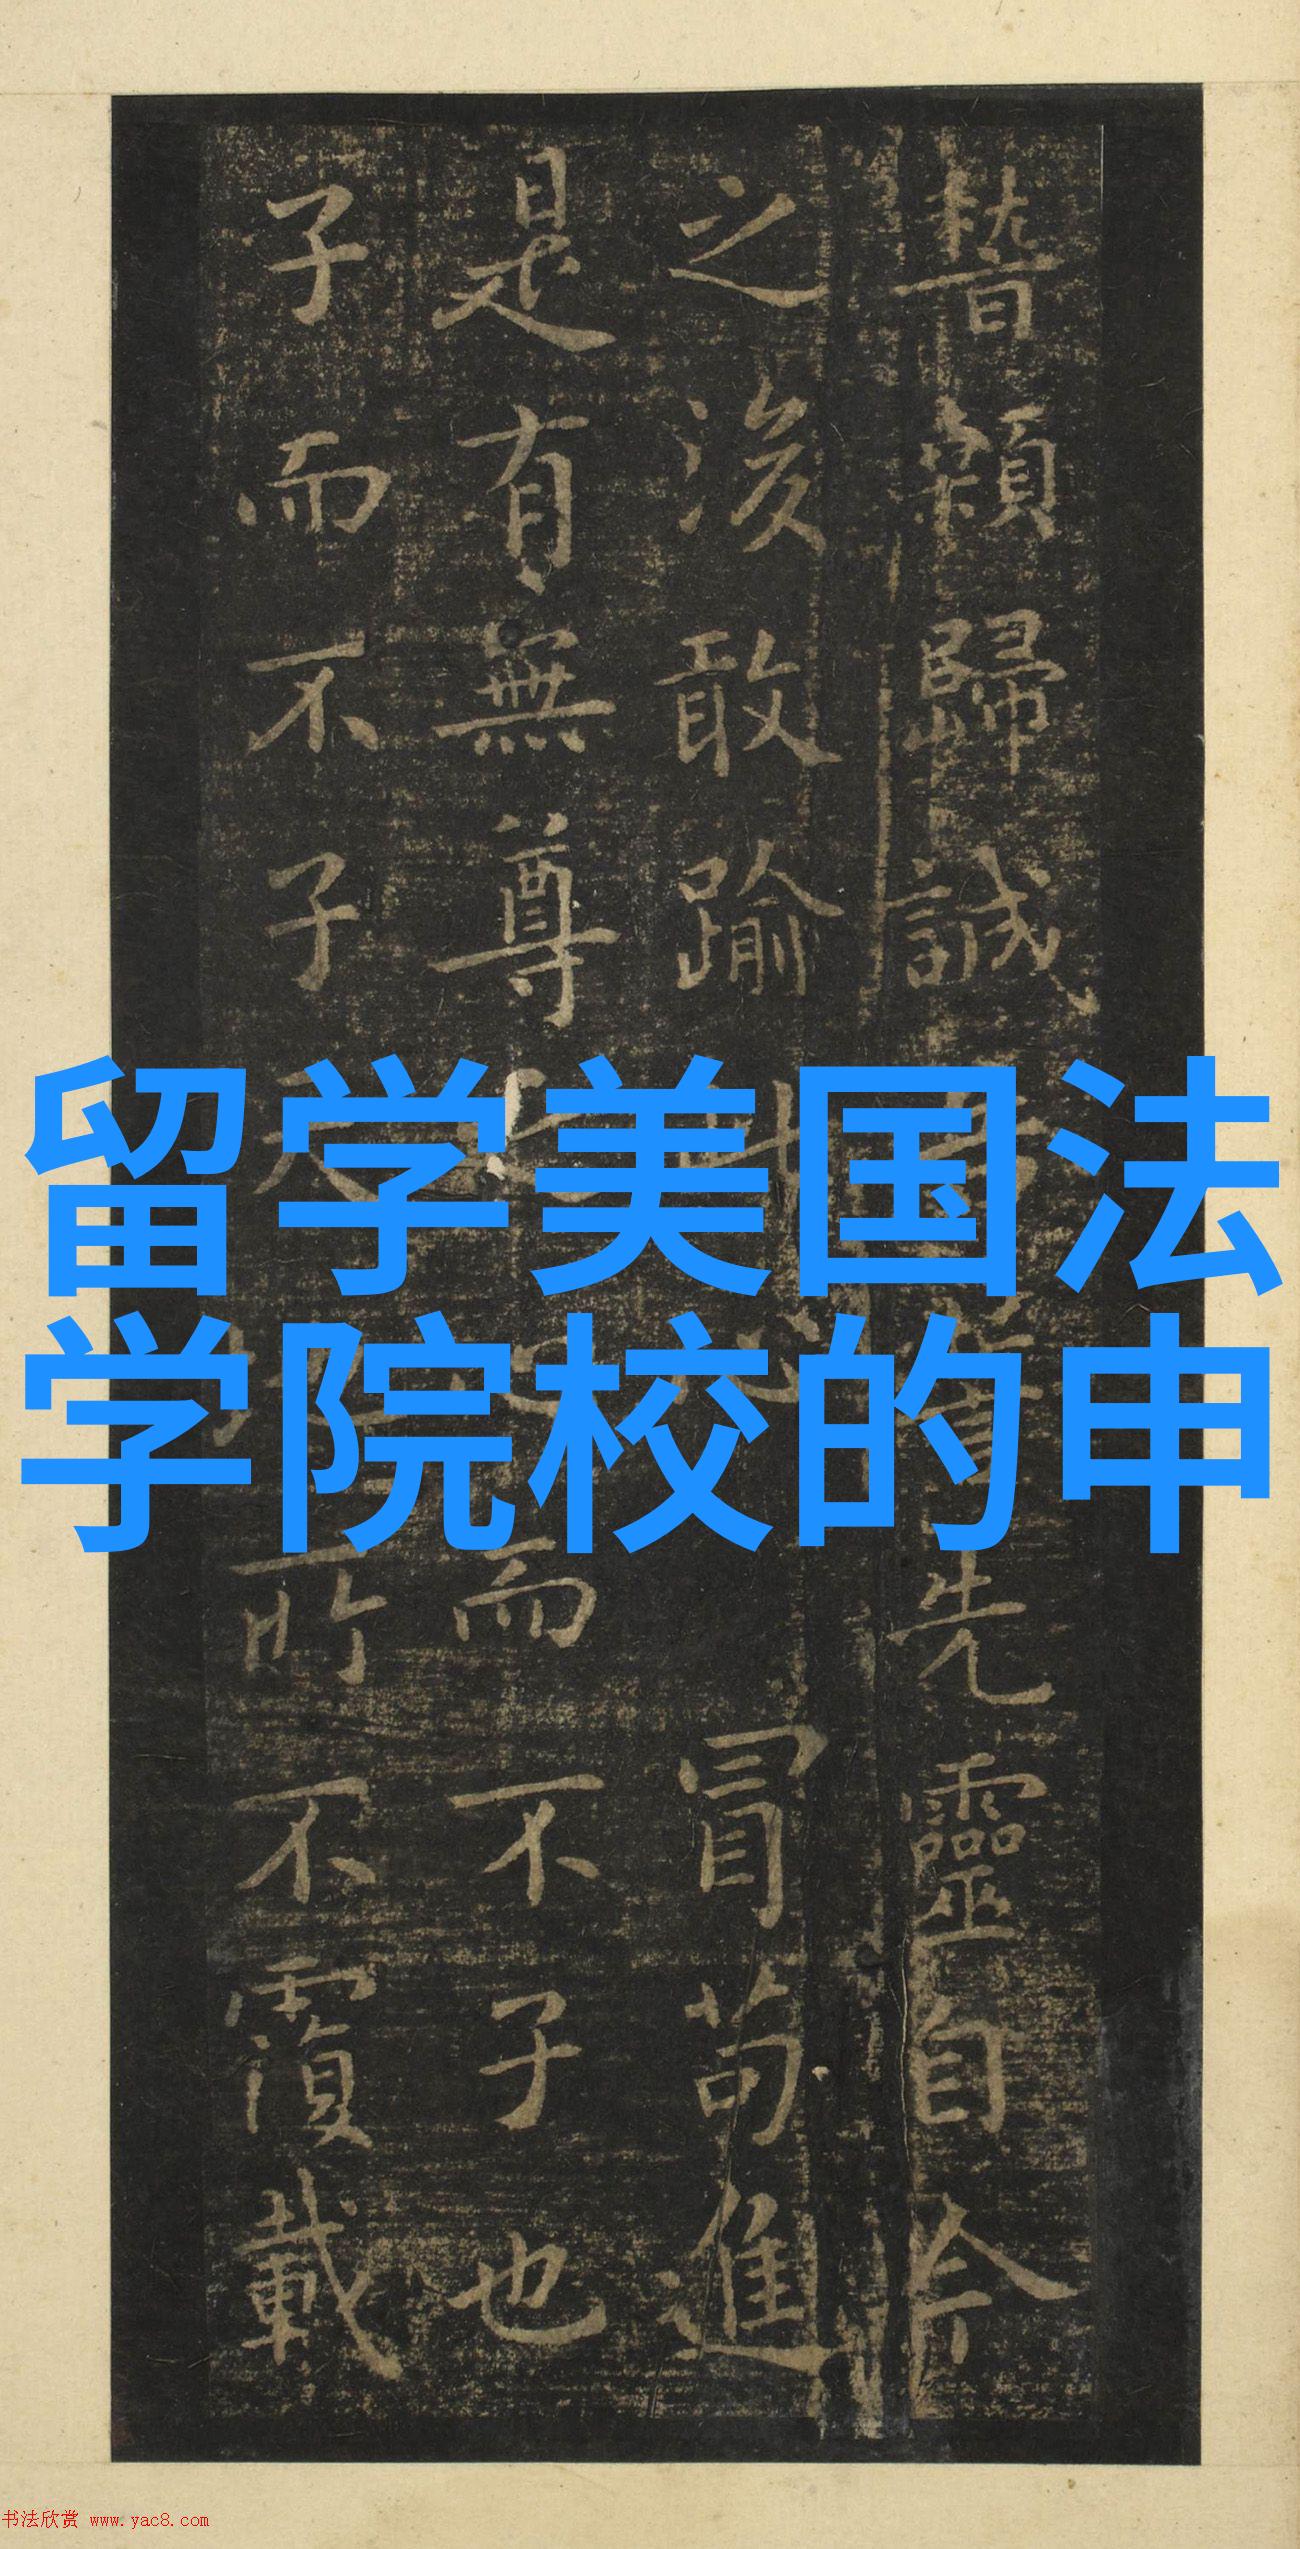 留学美国法
学院校的申
瞽顙歸誠
先靈自今
之後敢踰
此
冒苟進
是有無尊
而不子也
子而不子
所不覆載
书法欣赏 www.yac8.com